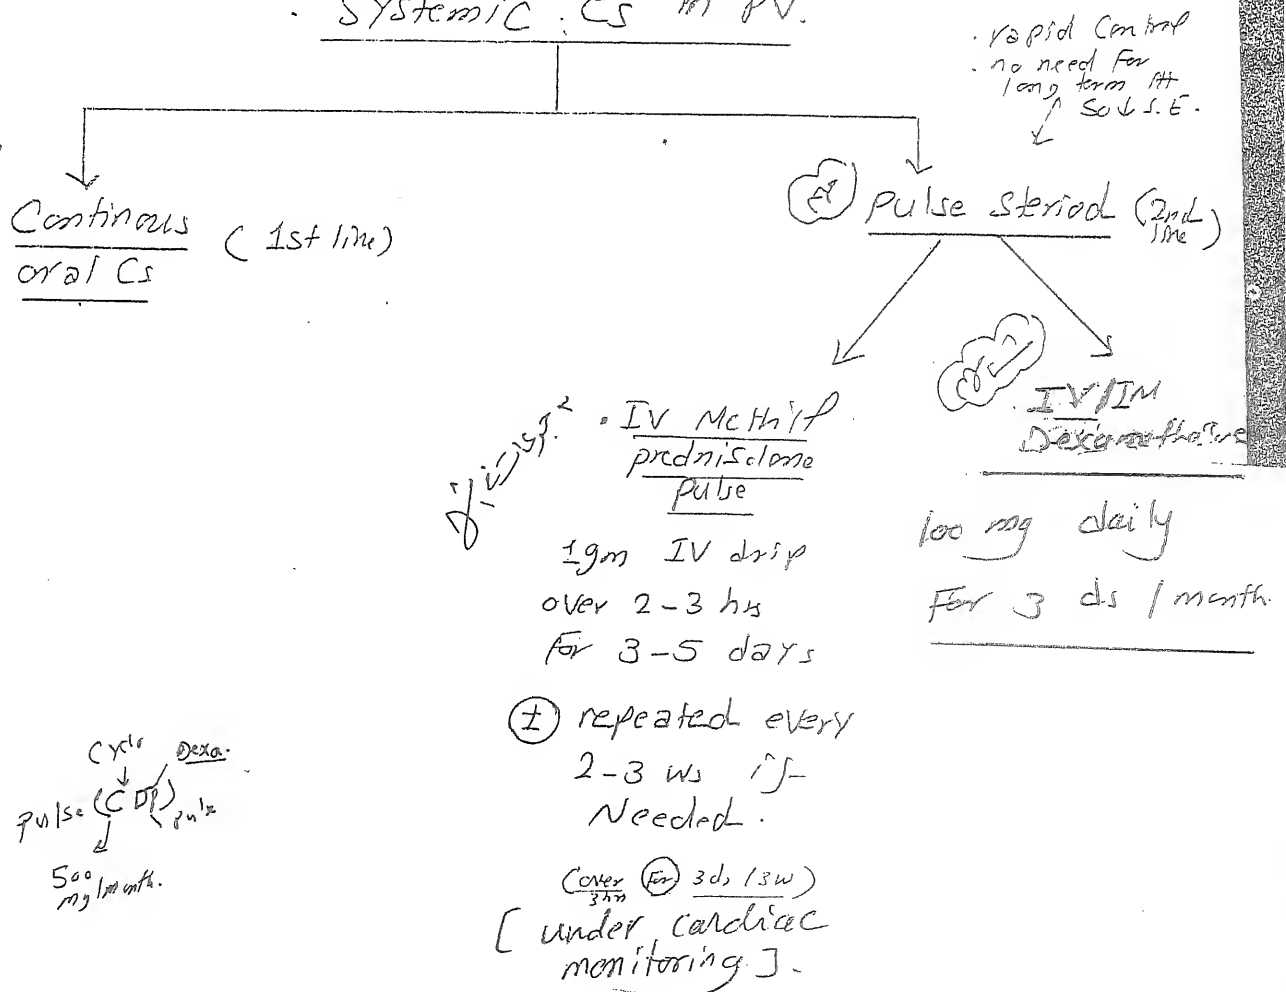 . Systemic . Cs in PV.
. rapid Control
. no need For
long term ttt
so ↓ S.E.
Continous
oral Cs
( 1st line)
Pulse Steriod (2nd
line)
. IV Methil
prednisolone
pulse
1gm IV drip
over 2-3 hrs
For 3-5 days
± repeated every
2-3 ws if
Needed.
(over
3hrs
For 3ds/3w)
[ under cardiac
monitoring ].
. IV/IM
100 mg daily
For 3 ds / month.
Cyclo
Dexa.
pulse (C DP)
pulse
500
mg/month.